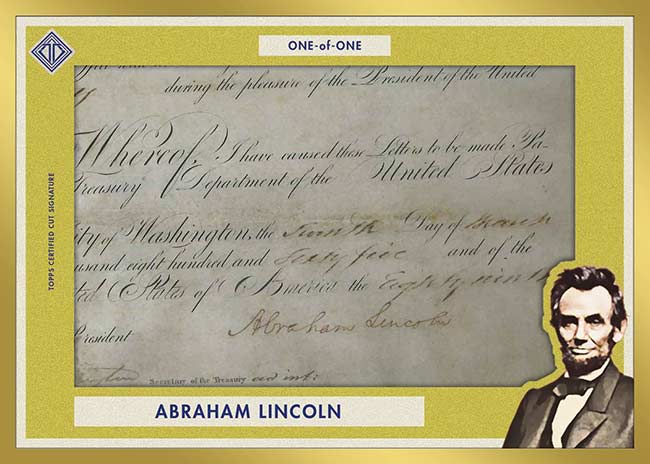 ONE-of-ONE
during the pleasure of the President of the United
Whereof, I have caused these Letters to be made Pa-
Treasury Department of the United States
ity of Washington, the Day of March
usand eight hundred and Sixty five and of the
ted States of America the Eighty ninth
Abraham Lincoln
President
Secretary of the Treasury ad int:
TOPPS CERTIFIED CUT SIGNATURE
ABRAHAM LINCOLN